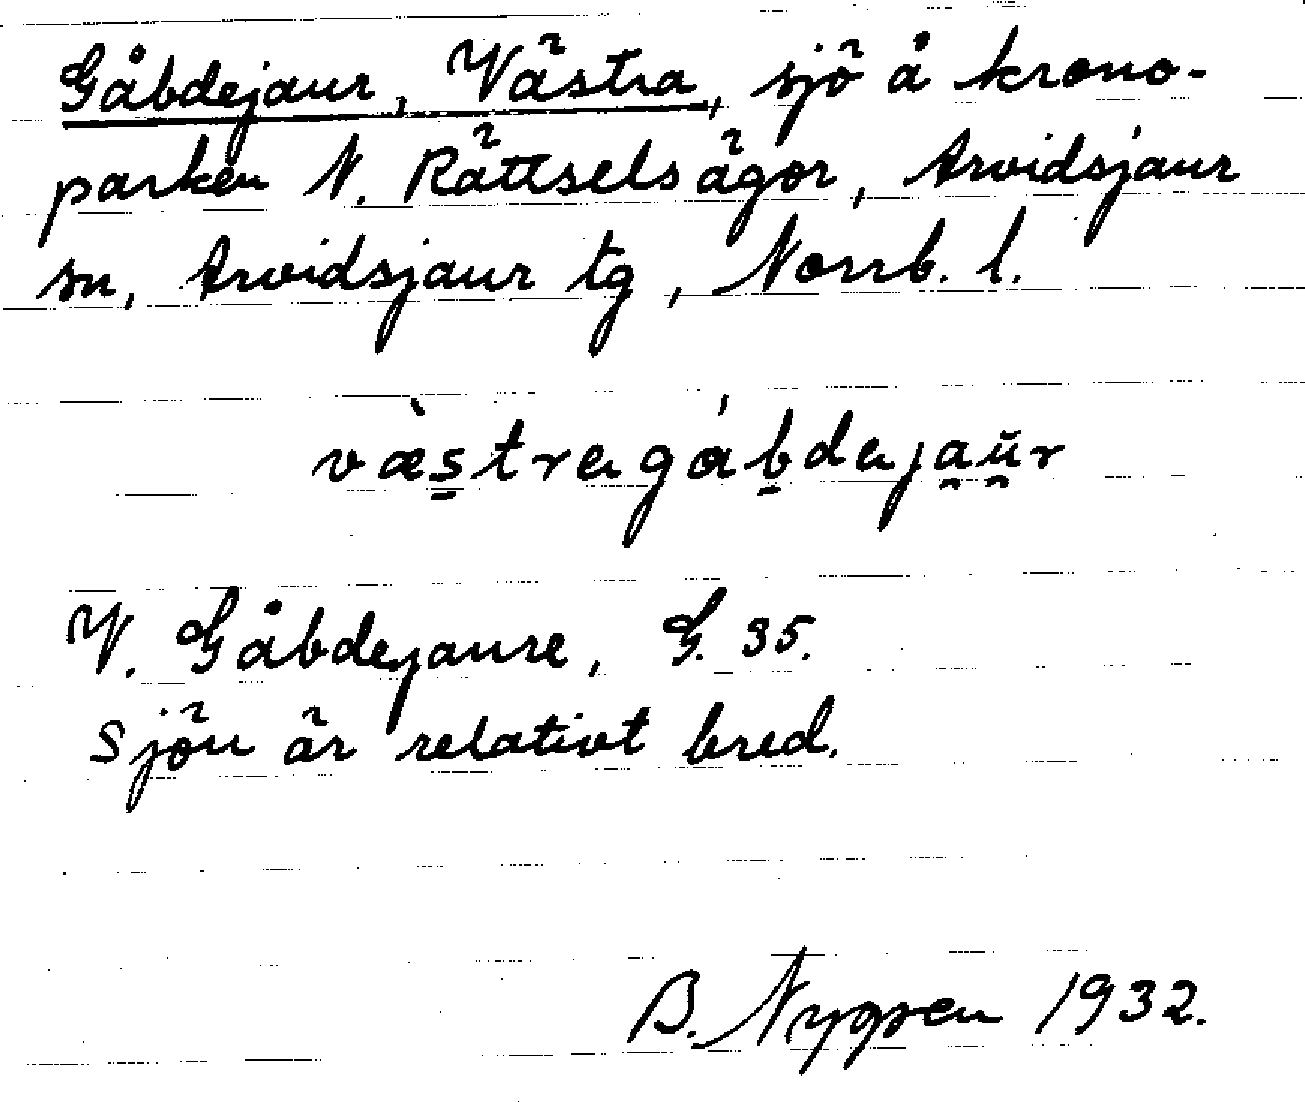 Gåbdejaur, Västra, sjö å krono-
parken N. Rättselsägor, Arvidsjaur
sn, Arvidsjaur tg, Norrb. l.
væ̀stregábdejau̯r
V. Gåbdejaure, G. 35.
Sjön är relativt bred.
B. Nygren 1932.